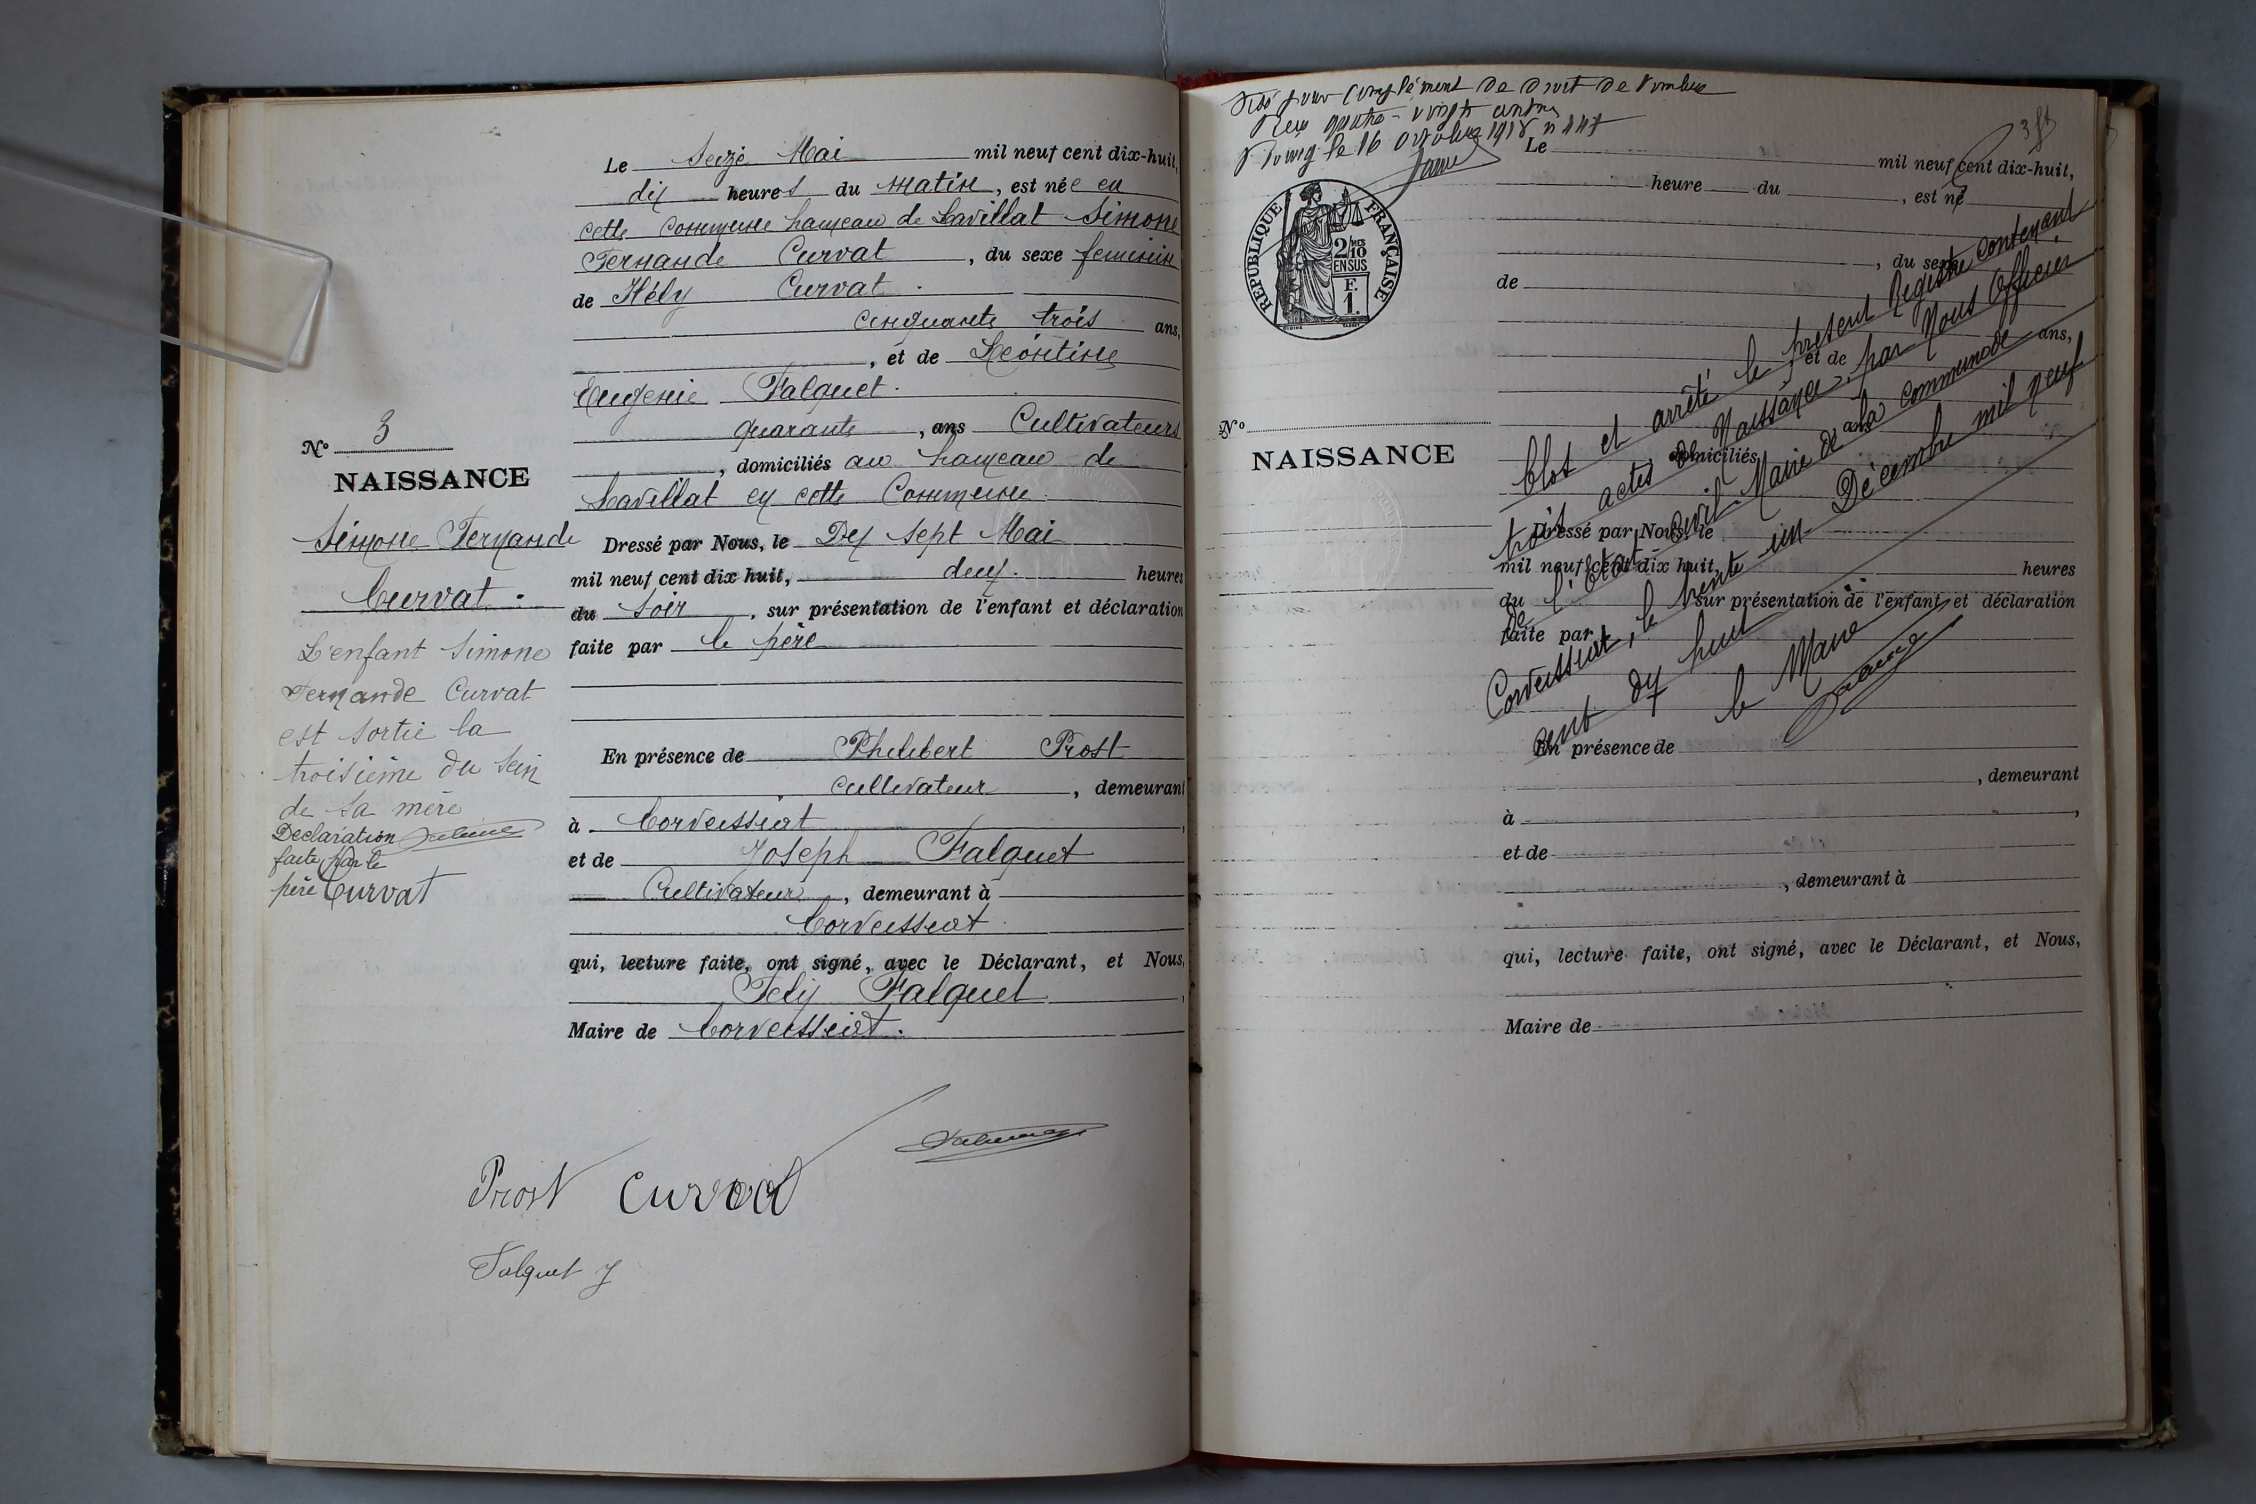 Le Seize Mai mil neuf cent dix-huit,
dix heures du matin, est née en
cette commune hameau de Lavillat Simone
Fernande Curvat, du sexe feminin
de Hély Curvat.
cinquante trois ans,
, et de Léontine
Eugenie Falquet.
quarante, ans Cultivateurs
, domiciliés au hameau de
Lavillat en cette Commune.
Dressé par Nous, le Dix sept Mai
mil neuf cent dix huit, deux. heures
du soir, sur présentation de l'enfant et déclaration
faite par le père
En présence de Philibert Prost
cultivateur, demeurant
à Corveissiat,
et de Joseph Falquet
Cultivateur, demeurant à
Corveissiat
qui, lecture faite, ont signé, avec le Déclarant, et Nous,
Felix Falquet,
Maire de Corveissiat.
Prost Curvat
Falquet J
Nº 3
NAISSANCE
Simone Fernande
Curvat.
L'enfant Simone
Fernande Curvat
est sortie la
troisième du sein
de sa mère
Declaration
faite par le
père Curvat
Visé pour complément de droit de timbre
le 16 octobre 1918 n 447
3 ft
RÉPUBLIQUE FRANÇAISE
2/10 MES
EN SUS
F.
1.
Nº
NAISSANCE
Le mil neuf cent dix-huit,
heure du, est né
, du sexe
de
ans,
, et de
, ans
, domiciliés
Dressé par Nous, le
mil neuf cent dix huit, heures
du, sur présentation de l'enfant et déclaration
faite par
En présence de
, demeurant
à,
et de
, demeurant à
qui, lecture faite, ont signé, avec le Déclarant, et Nous,
Maire de
Clos et arrêté le présent Registre contenant
trois actes de Naissance, par Nous Officier
de l'état-civil Maire de la commune de
Corveissiat, le trente un Décembre mil neuf
cent dix huit
le Maire